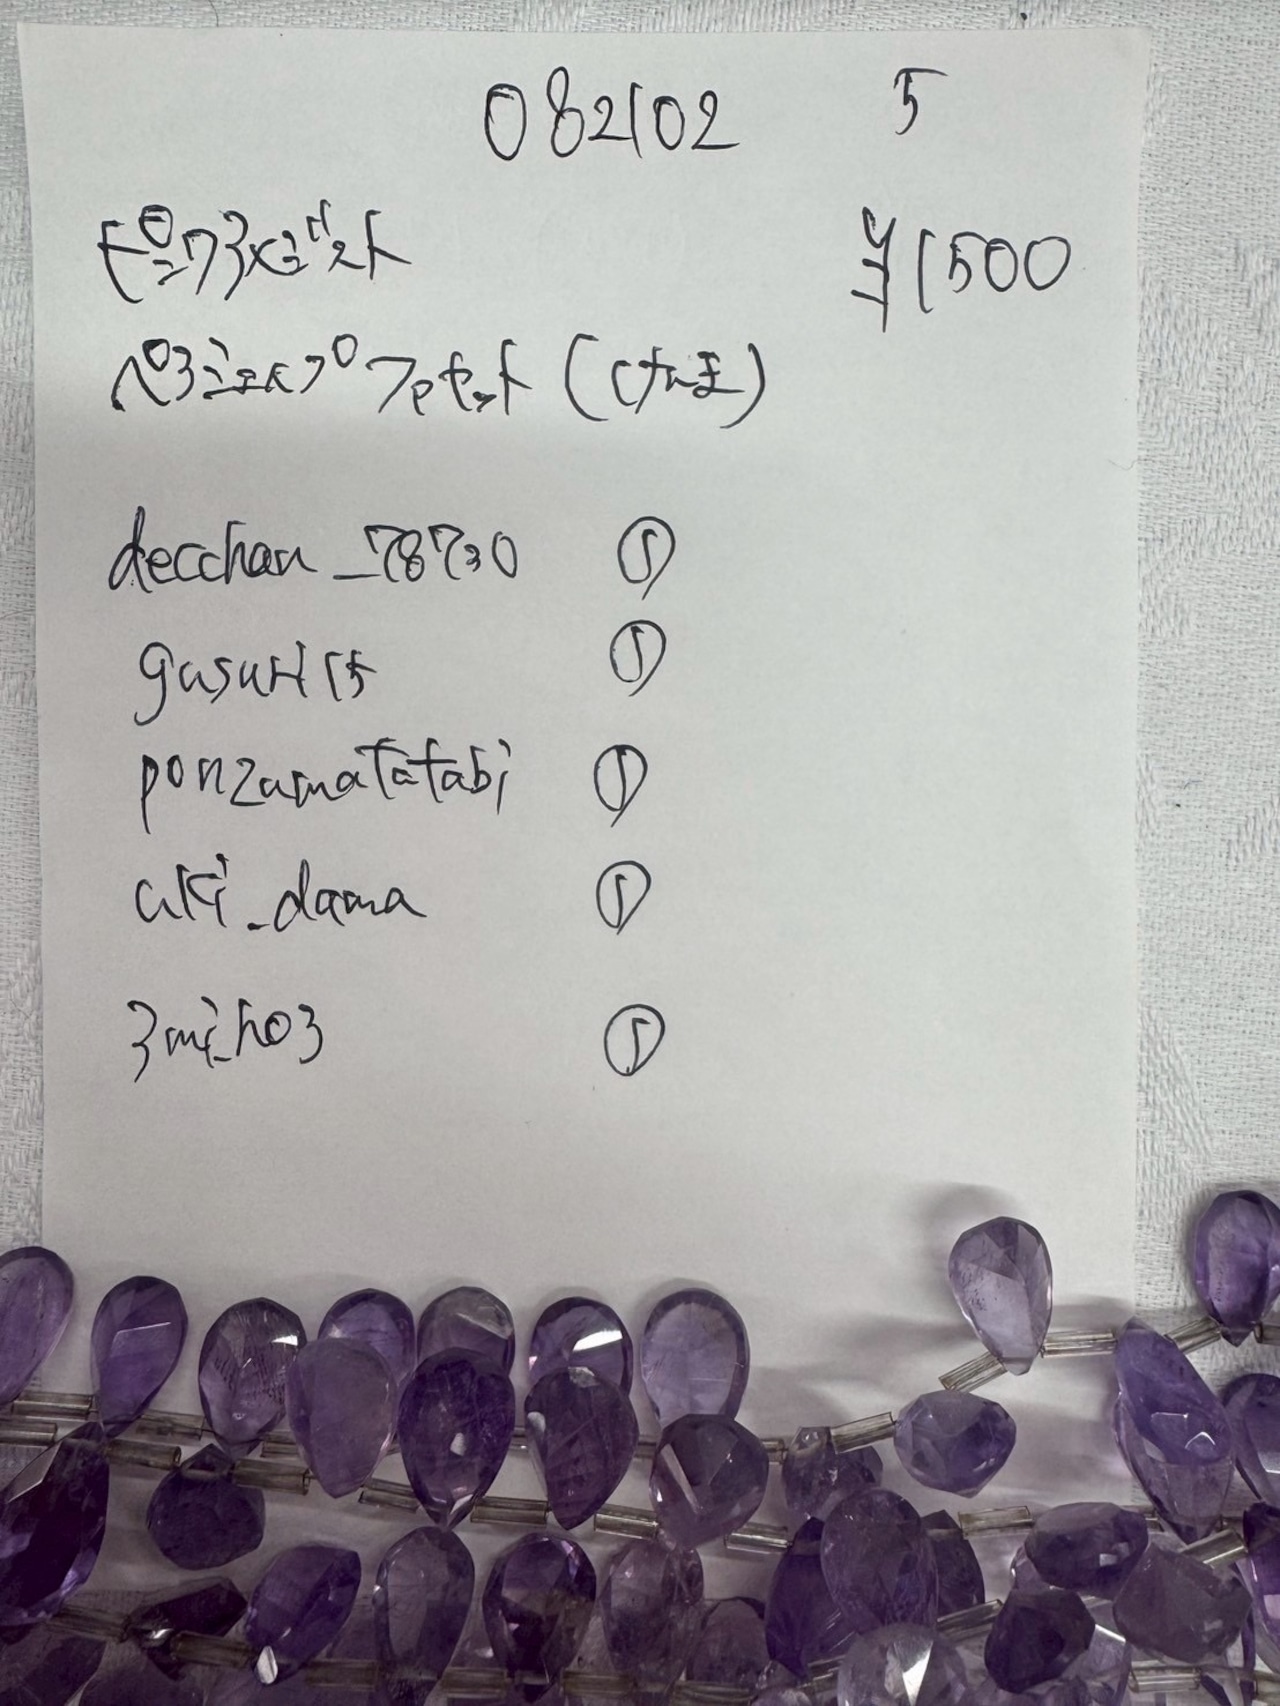 082102 5
ピンクアメジスト ¥1500
ペアシェイプ ファセット (けんま)
decchan_78730 ①
gusuri15 ①
ponzamatatabi ①
aki_dama ①
3mi_ho3 ①